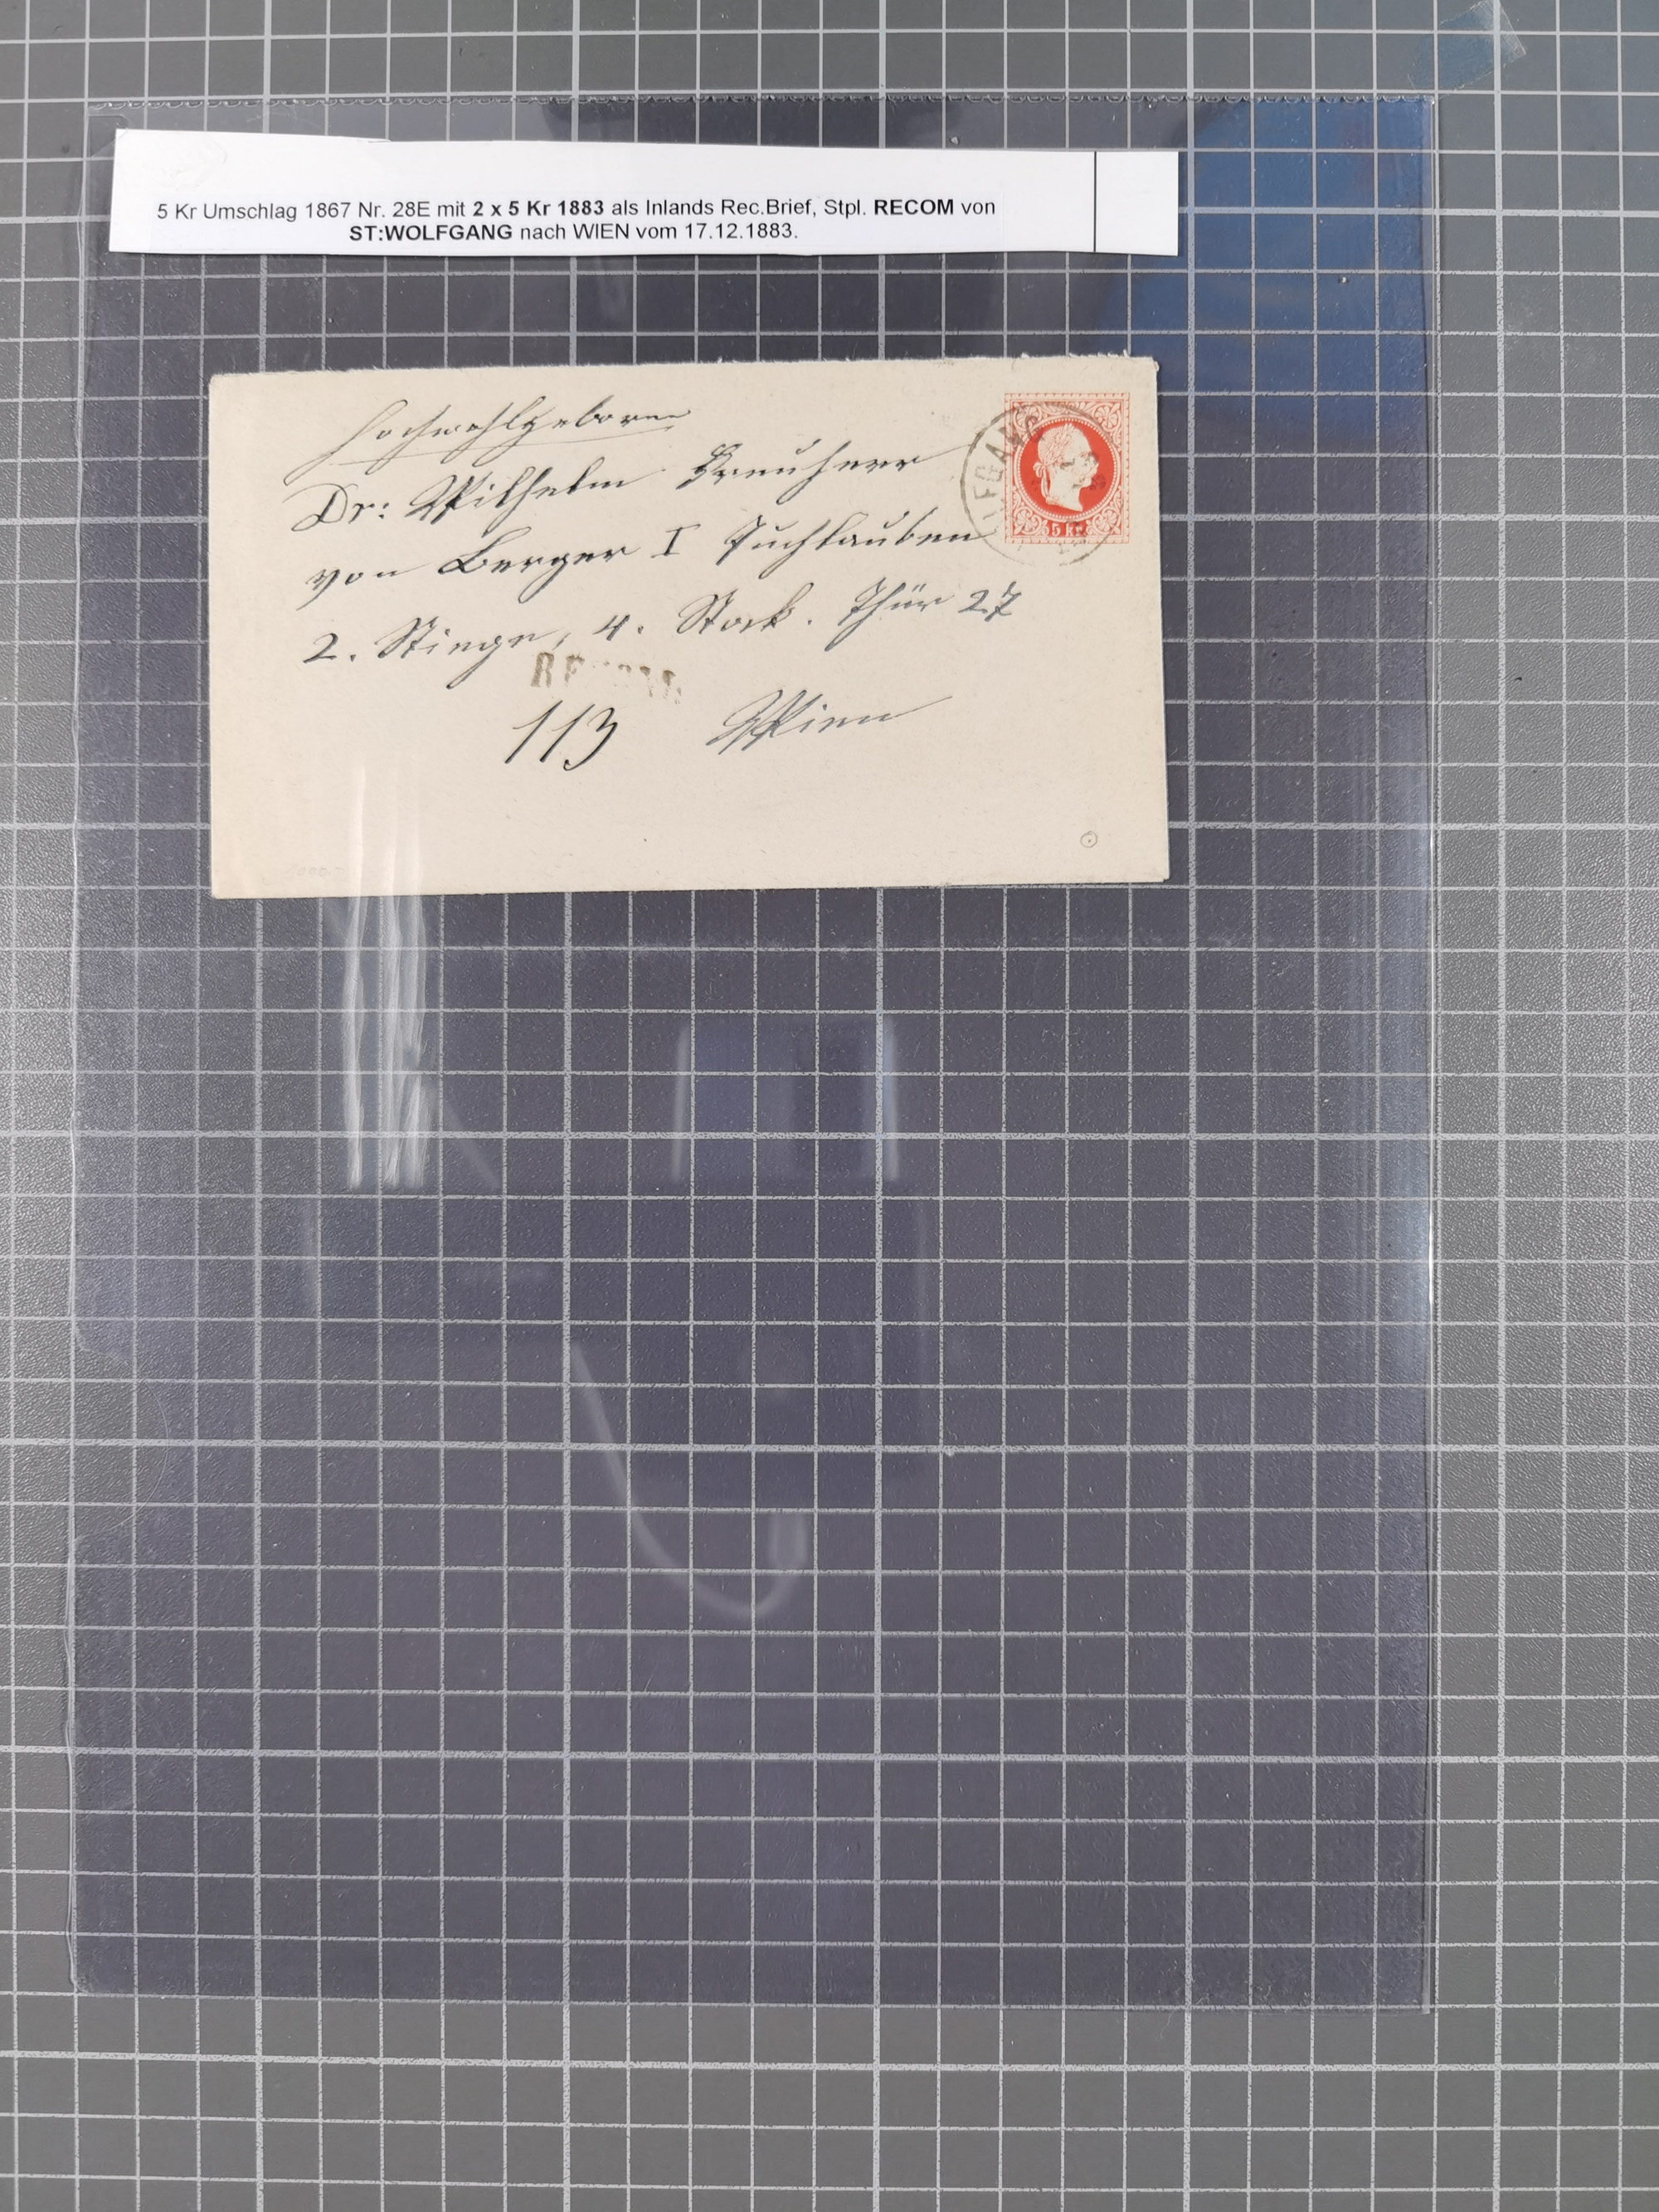 5 Kr Umschlag 1867 Nr. 28E mit 2 x 5 Kr 1883 als Inlands Rec.Brief, Stpl. RECOM von
ST:WOLFGANG nach WIEN vom 17.12.1883.
Hochwohlgeboren
Dr: Wilhelm Freuherr
von Berger I Tuchlauben
2. Stiege, 4. Stock. Thür 27
113 Wien
5 kr.